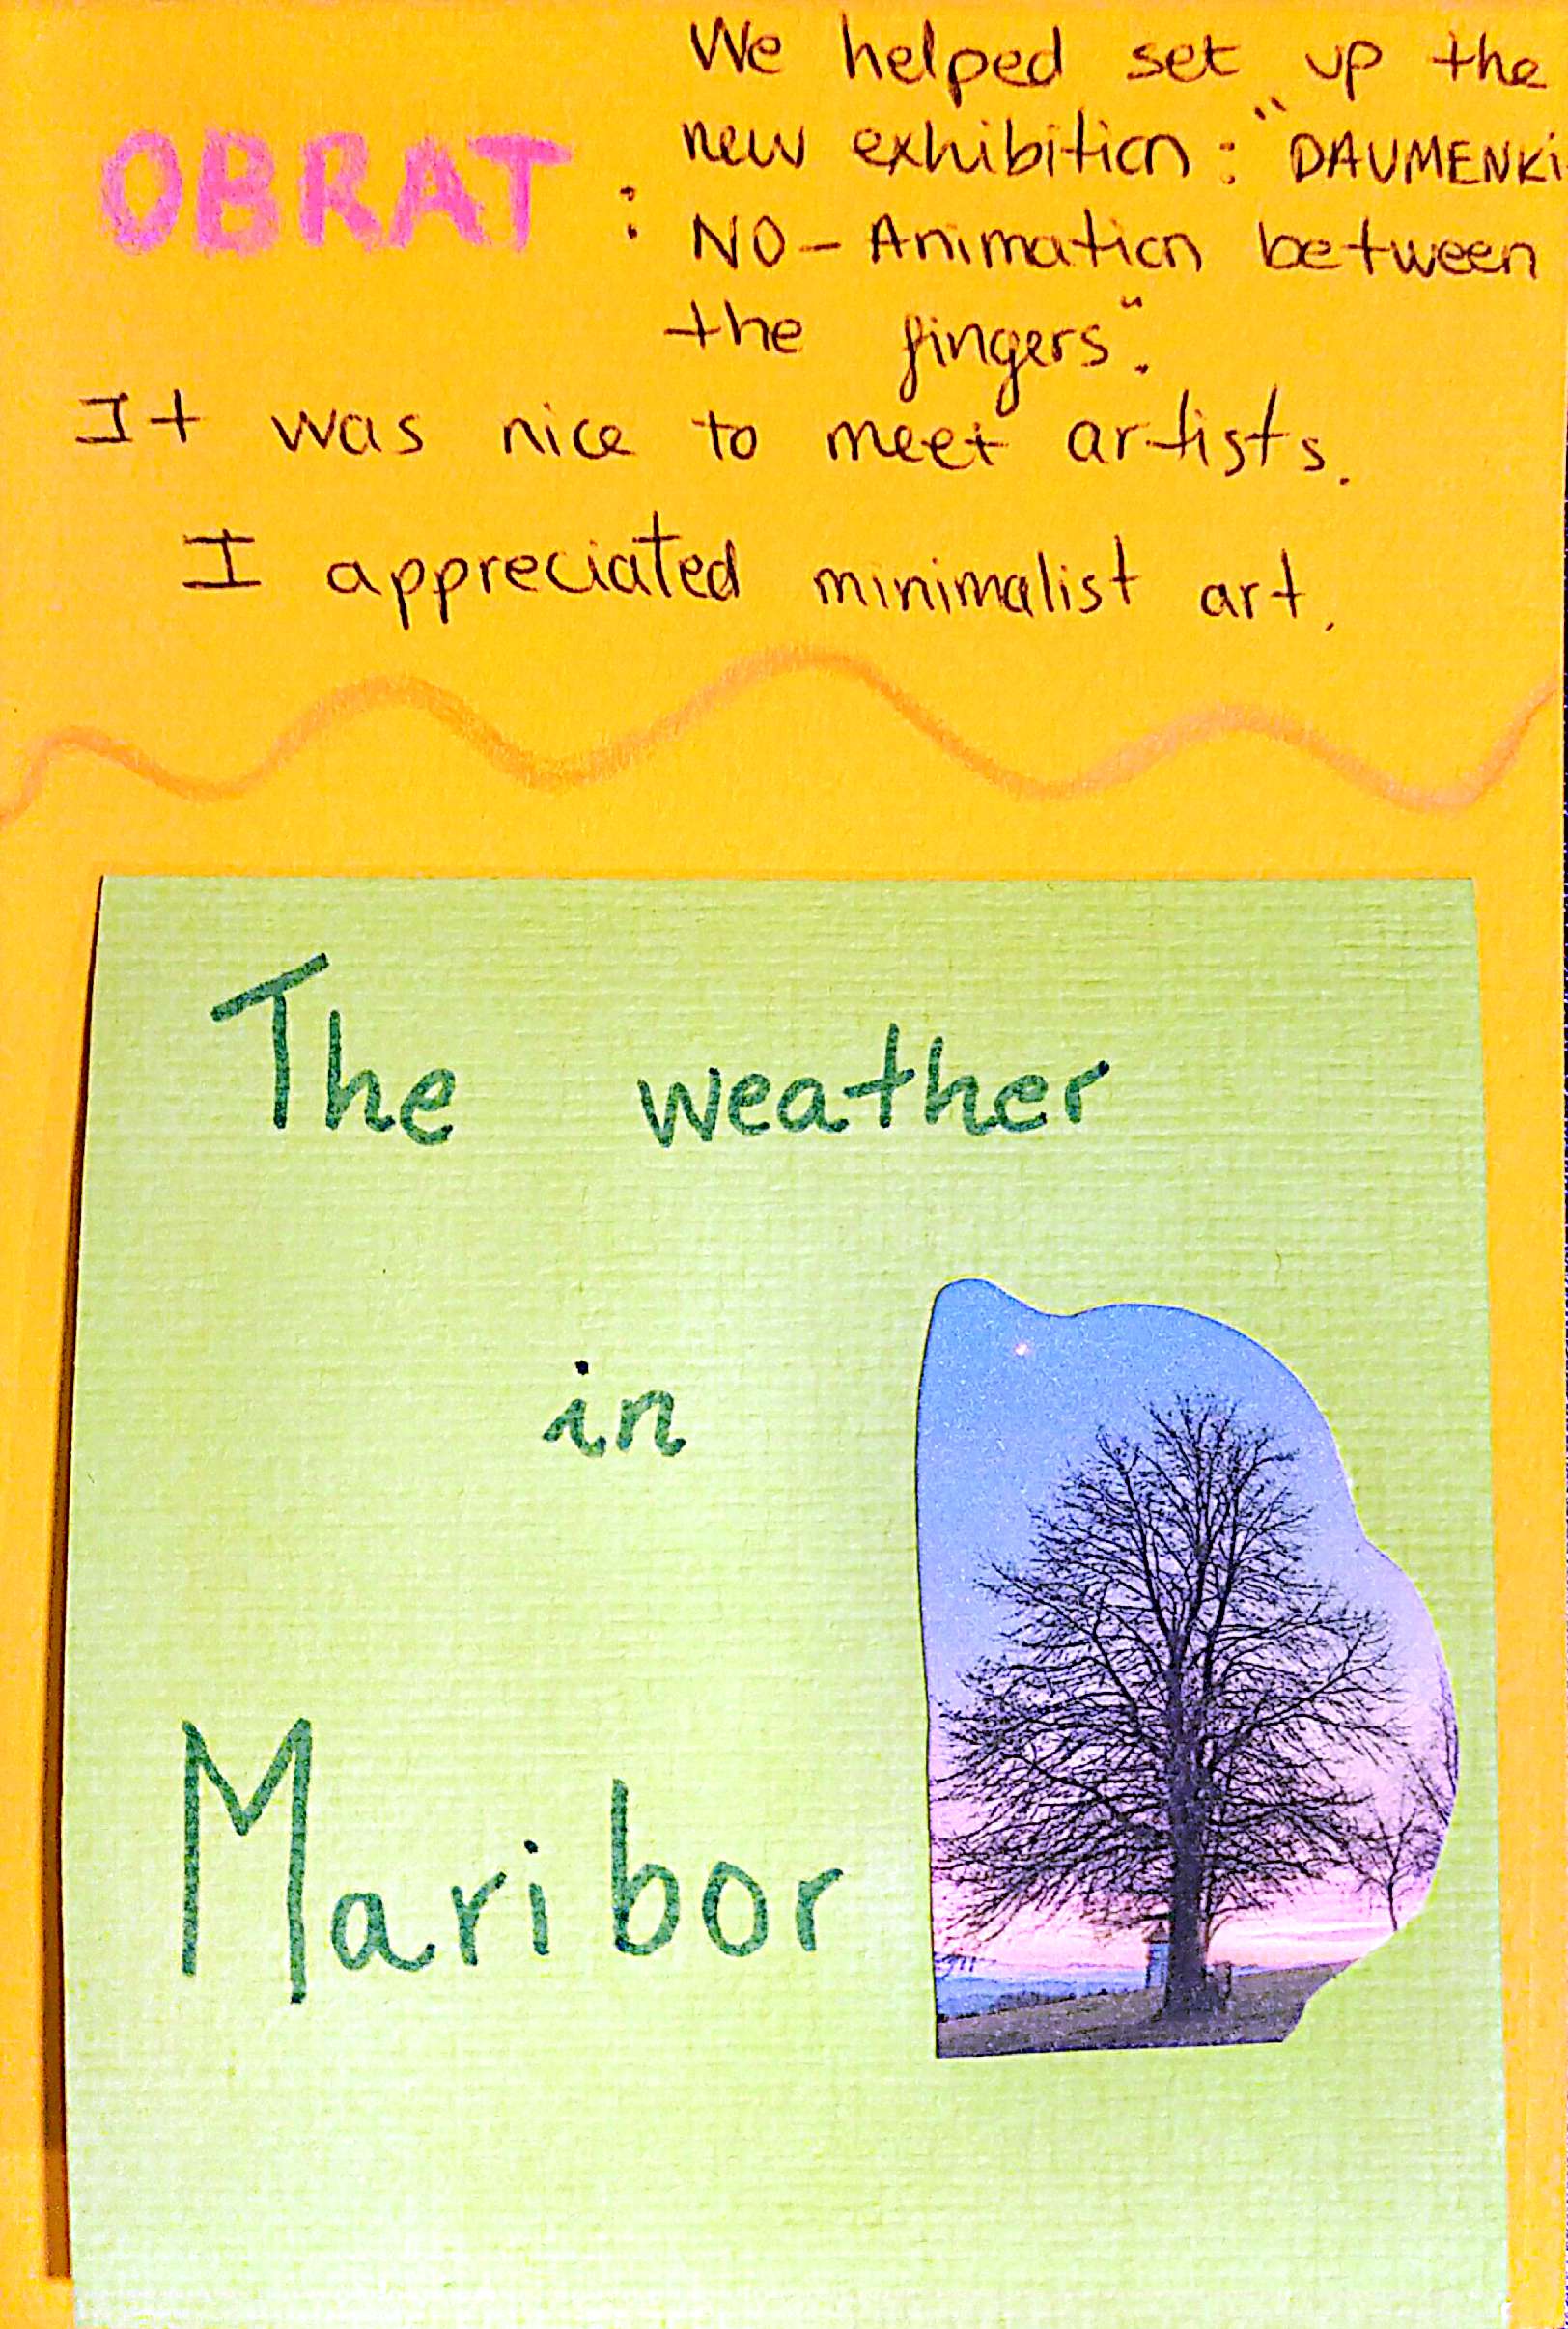 We helped set up the
OBRAT : new exhibition : "DAUMENKI-
NO - Animation between
the fingers".
It was nice to meet artists.
I appreciated minimalist art.
The weather
in
Maribor